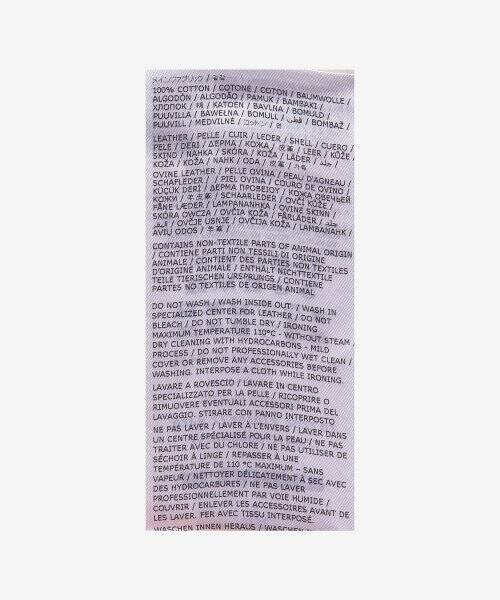 メインファブリック / 겉감
100% COTTON / COTONE / COTON / BAUMWOLLE /
ALGODÓN / ALGODÃO / PAMUK / BAMBÁKI /
ХЛОПОК / 棉 / KATOEN / BAVLNA / BOMULD /
PUUVILLA / BAWEŁNA / BOMULL / قطن / BOMBAŽ /
PUUVILL / MEDVILNĖ / コットン / 면
LEATHER / PELLE / CUIR / LEDER / SHELL / CUERO /
PELE / DERI / ΔΕΡΜΑ / КОЖА / 皮革 / LEER / KŮŽE /
SKIND / NAHKA / SKÓRA / KOŽA / LÄDER / جلد /
KOŽA / KOŽA / NAHK / ODA / 皮革 / 가죽
OVINE LEATHER / PELLE OVINA / PEAU D'AGNEAU /
SCHAFLEDER / / PIEL OVINA / COURO DE OVINO /
KÜÇÜK DERİ / ΔΕΡΜΑ ΠΡΟΒΕΙΟΥ / КОЖА ОВЕЧЬЕЙ
КОЖИ / 羊皮革 / SCHAARLEDER / OVČÍ KŮŽE /
FÅNE LÆDER / LAMPANANHKA / OVINE SKINN /
SKÓRA OWCZA / OVČIJA KOŽA / FÅRLÄDER / جلد
/ OVČJE USNJE / OVČIJA KOŽA / LAMBANAHK /
AVIŲ ODOS / 羊革 /
CONTAINS NON-TEXTILE PARTS OF ANIMAL ORIGIN
/ CONTIENE PARTI NON TESSILI DI ORIGINE
ANIMALE / CONTIENT DES PARTIES NON TEXTILES
D'ORIGINE ANIMALE / ENTHÄLT NICHTTEXTILE
TEILE TIERISCHEN URSPRUNGS / CONTIENE
PARTES NO TEXTILES DE ORIGEN ANIMAL
DO NOT WASH / WASH INSIDE OUT. / WASH IN
SPECIALIZED CENTER FOR LEATHER / DO NOT
BLEACH / DO NOT TUMBLE DRY / IRONING
MAXIMUM TEMPERATURE 110°C - WITHOUT STEAM /
DRY CLEANING WITH HYDROCARBONS - MILD
PROCESS / DO NOT PROFESSIONALLY WET CLEAN /
COVER OR REMOVE ANY ACCESSORIES BEFORE
WASHING. INTERPOSE A CLOTH WHILE IRONING.
LAVARE A ROVESCIO / LAVARE IN CENTRO
SPECIALIZZATO PER LA PELLE / RICOPRIRE O
RIMUOVERE EVENTUALI ACCESSORI PRIMA DEL
LAVAGGIO. STIRARE CON PANNO INTERPOSTO
NE PAS LAVER / LAVER À L'ENVERS / LAVER DANS
UN CENTRE SPÉCIALISÉ POUR LA PEAU / NE PAS
TRAITER AVEC DU CHLORE / NE PAS UTILISER DE
SÉCHOIR À LINGE / REPASSER À UNE
TEMPÉRATURE DE 110 °C MAXIMUM – SANS
VAPEUR / NETTOYER DÉLICATEMENT À SEC AVEC
DES HYDROCARBURES / NE PAS LAVER
PROFESSIONNELLEMENT PAR VOIE HUMIDE /
COUVRIR / ENLEVER LES ACCESSOIRES AVANT DE
LES LAVER. FER AVEC TISSU INTERPOSÉ.
WASCHEN INNEN HERAUS / WASCHEN IN